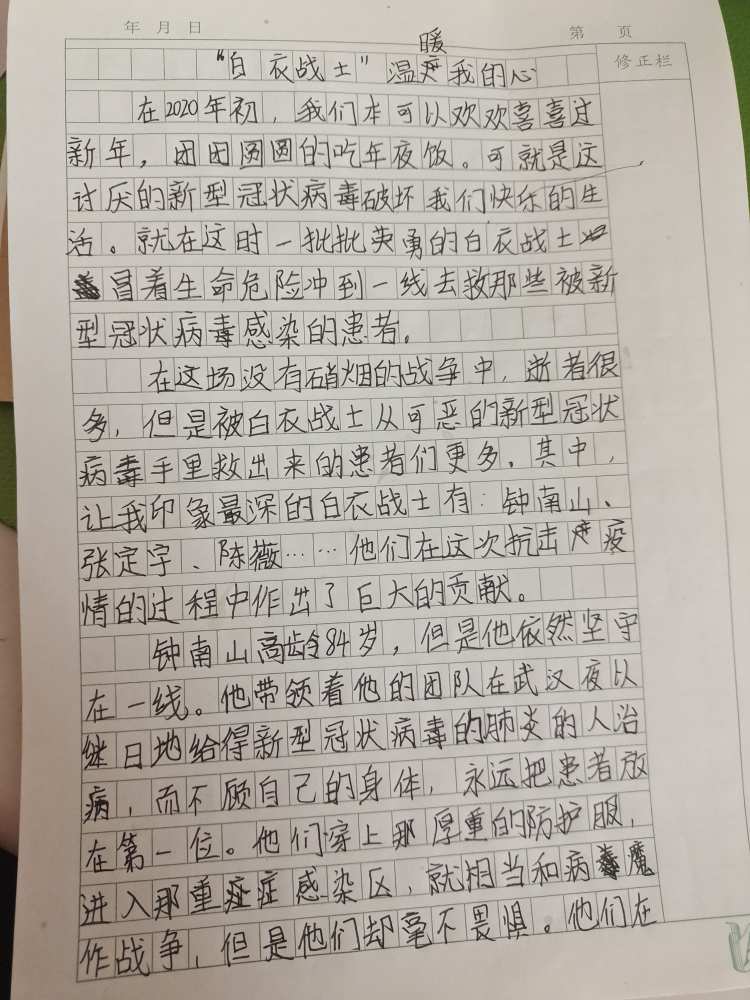 年 月 日 第 页
修正栏
“白衣战士”温暖我的心
在2020年初，我们本可以欢欢喜喜过
新年，团团圆圆的吃年夜饭。可就是这
讨厌的新型冠状病毒破坏我们快乐的生
活。就在这时一批批英勇的白衣战士
冒着生命危险冲到一线去救那些被新
型冠状病毒感染的患者。
在这场没有硝烟的战争中，逝者很
多，但是被白衣战士从可恶的新型冠状
病毒手里救出来的患者们更多。其中，
让我印象最深的白衣战士有：钟南山、
张定宇、陈薇……他们在这次抗击疫
情的过程中作出了巨大的贡献。
钟南山高龄84岁，但是他依然坚守
在一线。他带领着他的团队在武汉夜以
继日地给得新型冠状病毒的肺炎的人治
病，而不顾自己的身体，永远把患者放
在第一位。他们穿上那厚重的防护服，
进入那重症症感染区，就相当和病毒魔
作战争，但是他们却毫不畏惧。他们在